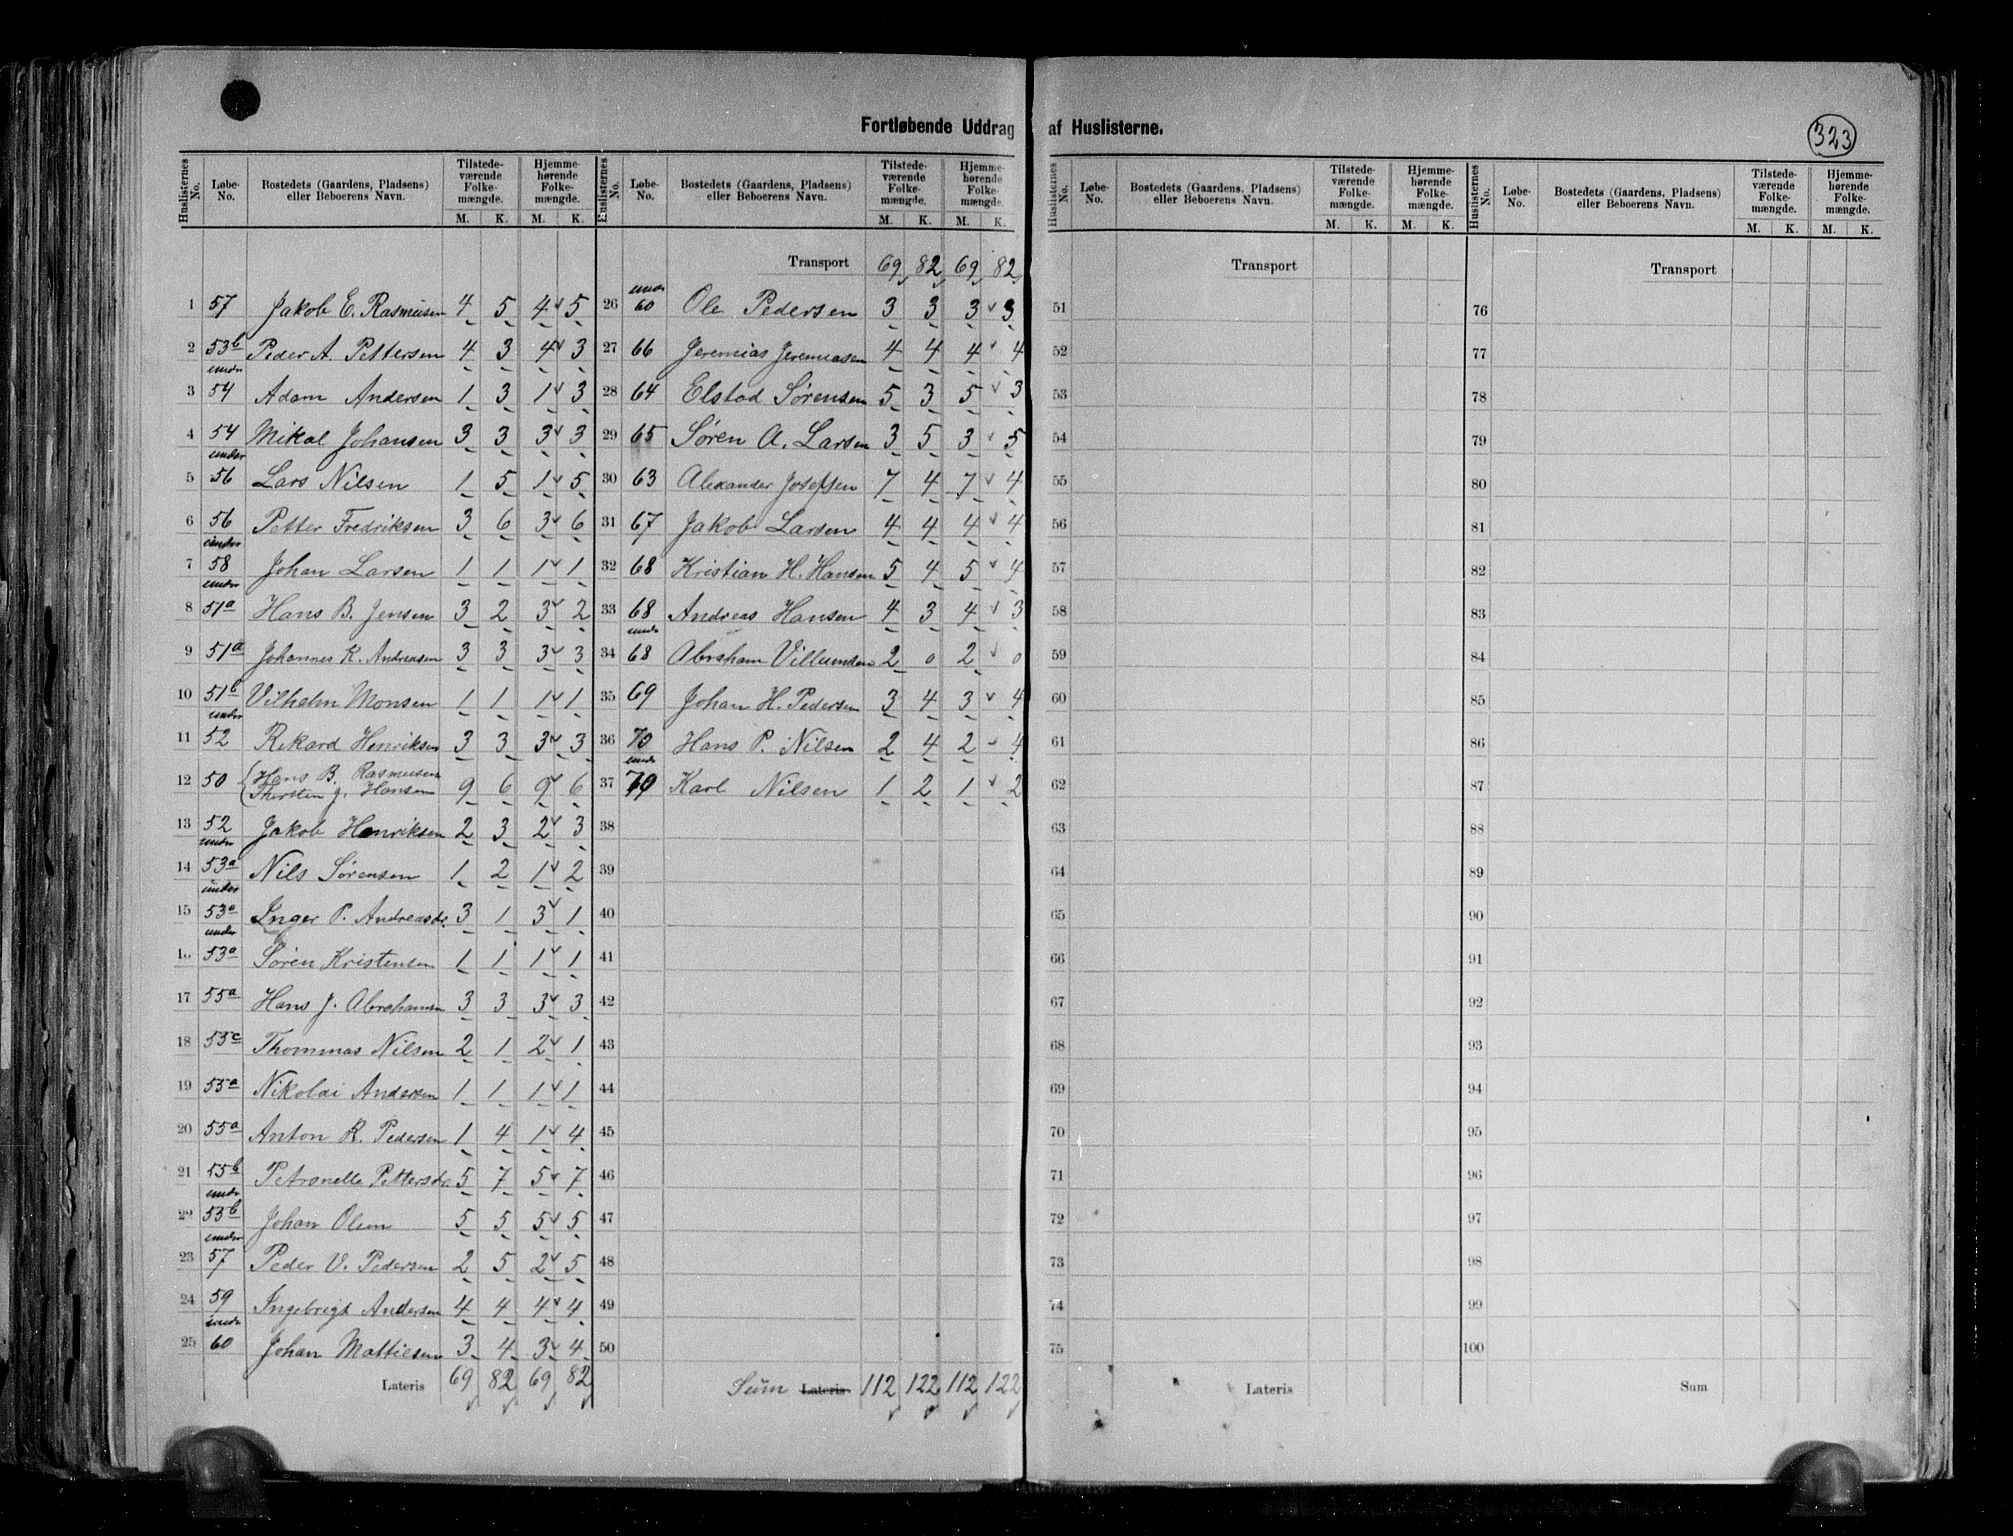 Fortløbende Uddrag af Huslisterne.
323
Huslisternes No. Løbe-No. Bostedets (Gaardens, Pladsens) eller Beboerens Navn. Tilstedeværende Folkemængde. M. K. Hjemmehørende Folkemængde. M. K.
1 57 Jakob E. Rasmusen 4 5 4 5
2 53b Peder A. Pettersen 4 3 4 3
3 under 54 Adam Andersen 1 3 1 3
4 54 Mikal Johansen 3 3 3 3
5 under 56 Lars Nilsen 1 5 1 5
6 56 Petter Fredriksen 3 6 3 6
7 under 58 Johan Larsen 1 1 1 1
8 under 51a Hans B. Jensen 3 2 3 2
9 51a Johannes K. Andreasen 3 3 3 3
10 51b Vilhelm Monsen 1 1 1 1
11 under 52 Rikard Henriksen 3 3 3 3
12 50 Hans B. Rasmusen
Thersten J. Hansen 9 6 9 6
13 52 Jakob Henriksen 2 3 2 3
14 under 53a Nils Sørensen 1 2 1 2
15 under 53a Inger P. Andreasdr. 3 1 3 1
16 under 53a Søren Kristensen 1 1 1 1
17 55a Hans J. Abrahamsen 3 3 3 3
18 53c Thommas Nilsen 2 1 2 1
19 55a Nikolai Andersen 1 1 1 1
20 55a Anton R. Pedersen 1 4 1 4
21 55b Petronelle Pettersdr. 5 7 5 7
22 under 53b Johan Olsen 5 5 5 5
23 under 57 Peder V. Pedersen 2 5 2 5
24 59 Ingebrigt Andersen 4 4 4 4
25 under 60 Johan Mattiesen 3 4 3 4
Lateris 69 82 69 82
Huslisternes No. Løbe-No. Bostedets (Gaardens, Pladsens) eller Beboerens Navn. Tilstedeværende Folkemængde. M. K. Hjemmehørende Folkemængde. M. K.
Transport 69 82 69 82
26 under 60 Ole Pedersen 3 3 3 3
27 66 Jeremias Jeremiasen 4 4 4 4
28 64 Elstad Sørensen 5 3 5 3
29 65 Søren A. Larsen 3 5 3 5
30 63 Alexander Josefsen 7 4 7 4
31 67 Jakob Larsen 4 4 4 4
32 68 Kristian H. Hansen 5 4 5 4
33 68 Andreas Hansen 4 3 4 3
34 under 68 Abraham Villumsen 2 0 2 0
35 69 Johan H. Pedersen 3 4 3 4
36 70 Hans P. Nilsen 2 4 2 4
37 under Karl Nilsen 1 2 1 2
38
39
40
41
42
43
44
45
46
47
48
49
50
Sum Lateris 112 122 112 122
Huslisternes No. Løbe-No. Bostedets (Gaardens, Pladsens) eller Beboerens Navn. Tilstedeværende Folkemængde. M. K. Hjemmehørende Folkemængde. M. K.
Transport
51
52
53
54
55
56
57
58
59
60
61
62
63
64
65
66
67
68
69
70
71
72
73
74
75
Lateris
Huslisternes No. Løbe-No. Bostedets (Gaardens, Pladsens) eller Beboerens Navn. Tilstedeværende Folkemængde. M. K. Hjemmehørende Folkemængde. M. K.
Transport
76
77
78
79
80
81
82
83
84
85
86
87
88
89
90
91
92
93
94
95
96
97
98
99
100
Sum